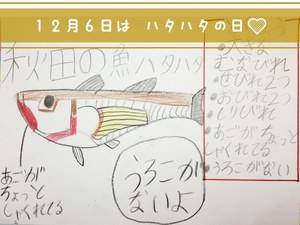 12月6日は ハタハタの日♡
秋田の魚ハタハタ
•大きな
むなびれ
•せびれ2つ
•おびれ2つ
•しりびれ
•あごがちょっと
しゃくれてる
•うろこがない
あごが
ちょっと
しゃくれてる
うろこが
ないよ